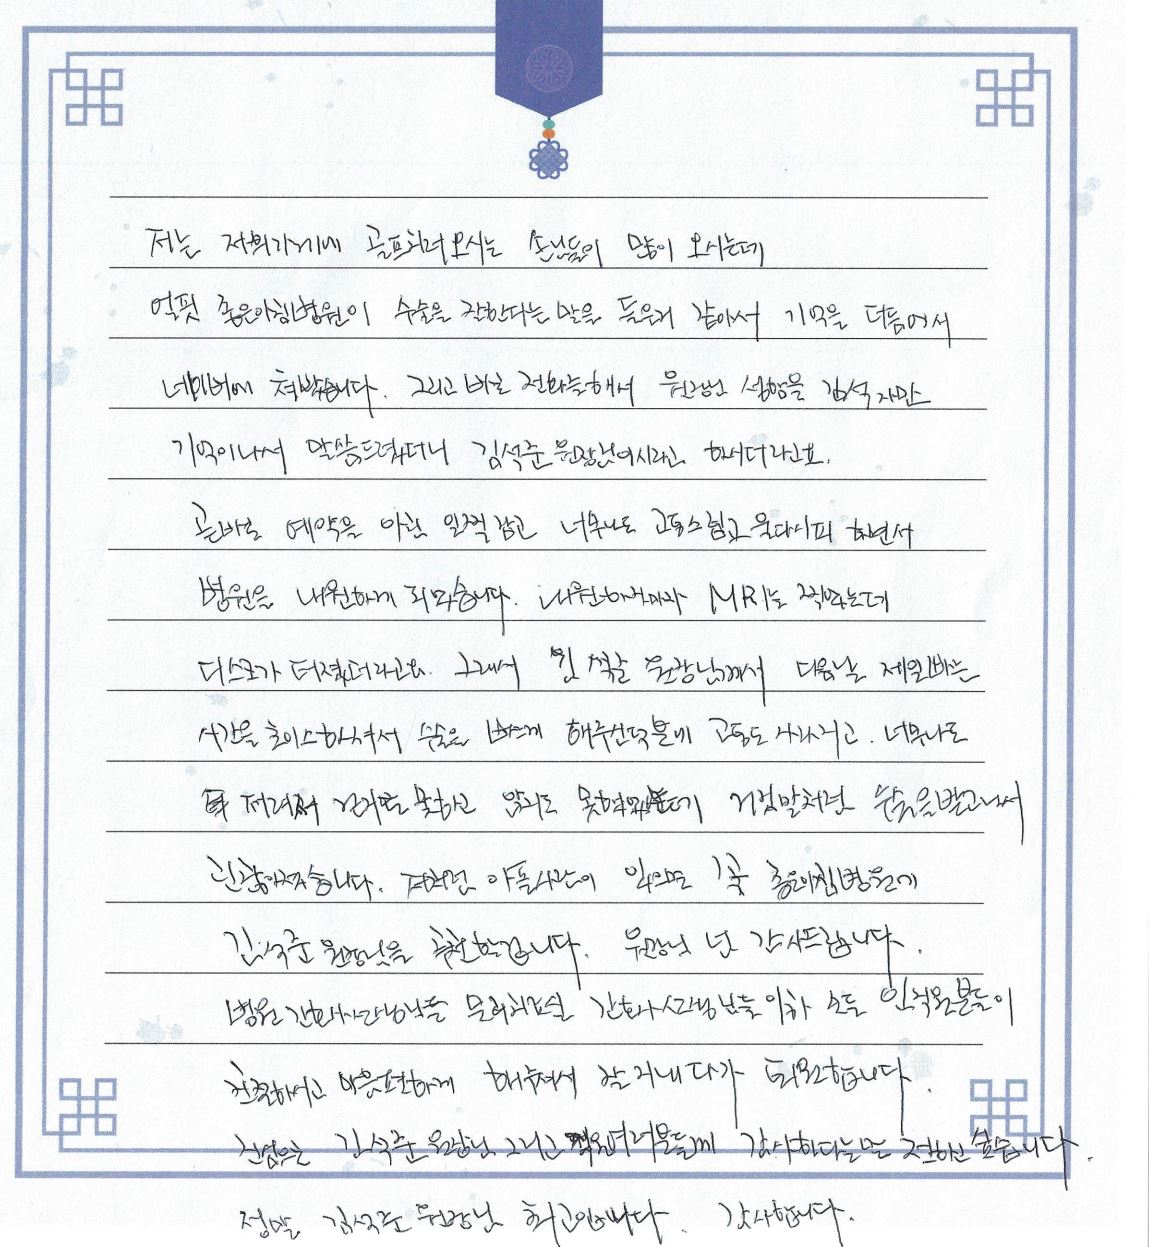 저는 저희가게에 골프치러오시는 손님들이 많이 오시는데
얼핏 좋은아침병원이 수술을 잘한다는 말을 들은거 같아서 기억을 더듬어서
네이버에 쳐봤습니다. 그리고 바로 전화를해서 원장님 성함을 김석 자만
기억이나서 말씀드렸더니 김석준 원장님이시라고 하시더라고요.
곧바로 예약을 아침 일찍 잡고 너무나도 고통스럽고 하면서
병원을 내원하게 되었습니다. 내원하자마자 MRI를 찍었는데
디스크가 터졌더라고요. 그래서 원장님께서 다음날 제일빠른
시간을 초이스하셔서 수술을 빠르게 해주신덕분에 고통도 사라지고. 너무나도
저려서 걷지도 못하고 앉지도 못하였는데 거짓말처럼 수술을받고나서
괜찮아졌습니다. 저처럼 아픈사람이 있으면 꼭 좋은아침병원에
김석준 원장님을 추천할겁니다. 원장님 넘 감사드립니다.
병원간호사선생님들 물리치료실 간호사선생님들 이하 모든 인직원분들이
친절하시고 마음편하게 해주셔서 잘 지내다가 퇴원합니다.
김석준 원장님 그리고 직원여러분들께 감사하다는말 전하고 싶습니다.
정말 김석준 원장님 최고입니다. 감사합니다.